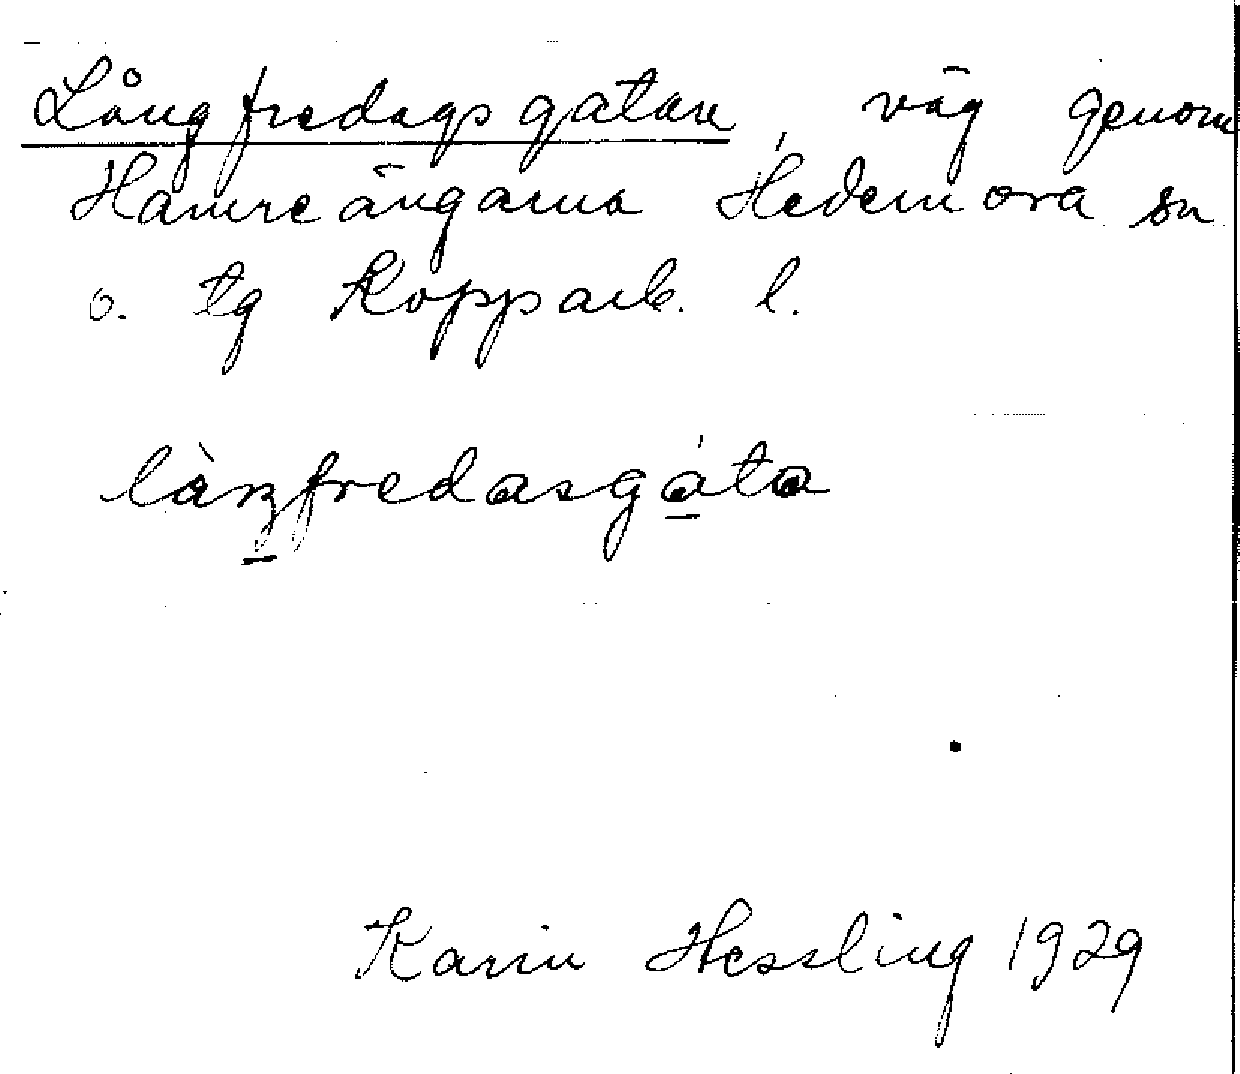 Långfredagsgatan, väg genom
Hamreängarna Hedemora sn
o. tg Kopparb. l.
làŋfredasgáta
Karin Hessling 1929